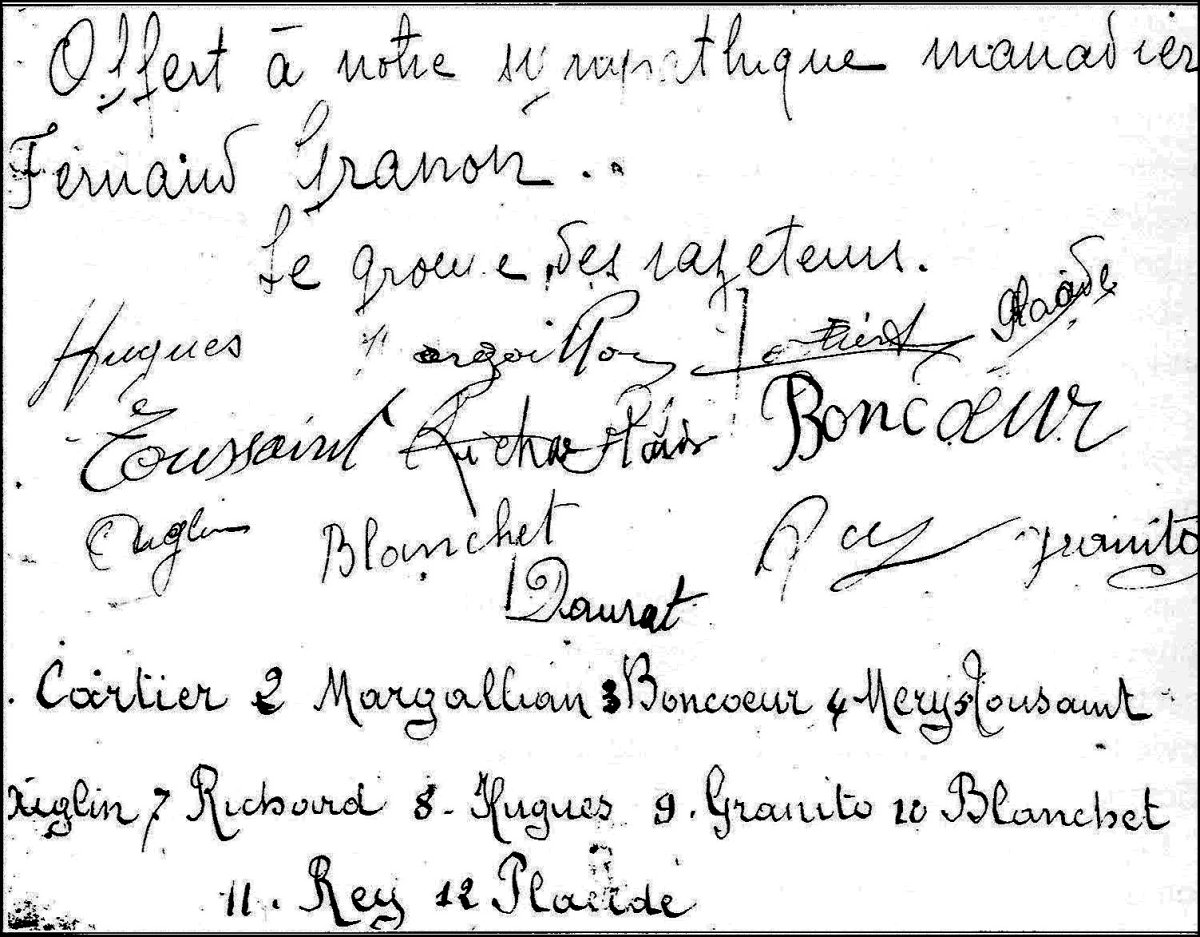 Offert à notre sympathique manadier
Fernand Granon..
Le groupe des razeteurs.
Hugues Margaillan Cartier Placide
Toussaint Richard Placide Boncoeur
Xuglin Blanchet Rey Granito
Daurat
Cartier 2 Margallian 3 Boncoeur 4 Mery 5 Tousaint
Xuglin 7 Richard 8 - Hugues 9. Granito 10 Blanchet
11. Rey 12 Placide